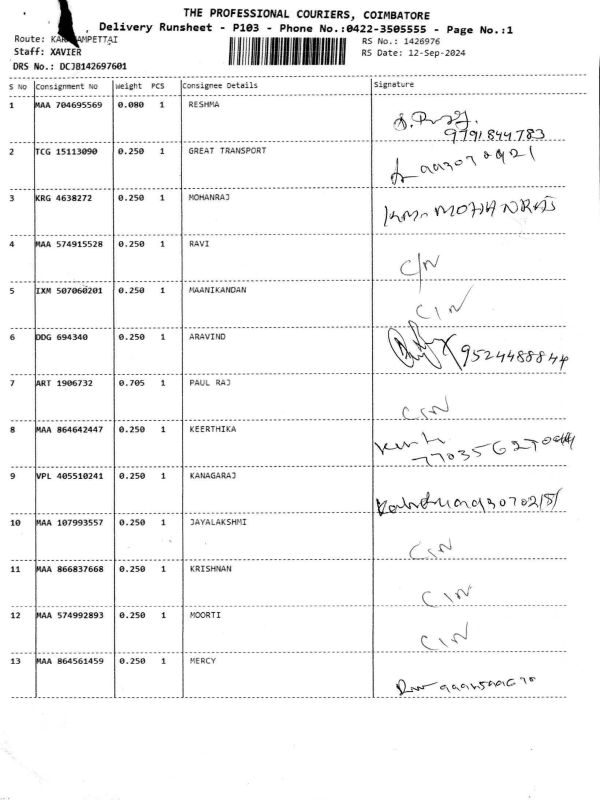 THE PROFESSIONAL COURIERS, COIMBATORE
Delivery Runsheet - P103 - Phone No.:0422-3505555 - Page No.:1
Route: RS No.: 1426976
Staff: XAVIER RS Date: 12-Sep-2024
DRS No.: DCJB142697601
S No Consignment No Weight PCS Consignee Details Signature
1 MAA 704695569 0.080 1 RESHMA
9791844783
2 TCG 15113090 0.250 1 GREAT TRANSPORT
3 KRG 4638272 0.250 1 MOHANRAJ MOHANRAJ
4 MAA 574915528 0.250 1 RAVI C/N
5 IXM 507060201 0.250 1 MAANIKANDAN C/N
6 DDG 694340 0.250 1 ARAVIND 9524488844
7 ART 1906732 0.705 1 PAUL RAJ C/N
8 MAA 864642447 0.250 1 KEERTHIKA
9 VPL 405510241 0.250 1 KANAGARAJ
10 MAA 107993557 0.250 1 JAYALAKSHMI C/N
11 MAA 866837668 0.250 1 KRISHNAN C/N
12 MAA 574992893 0.250 1 MOORTI C/N
13 MAA 864561459 0.250 1 MERCY